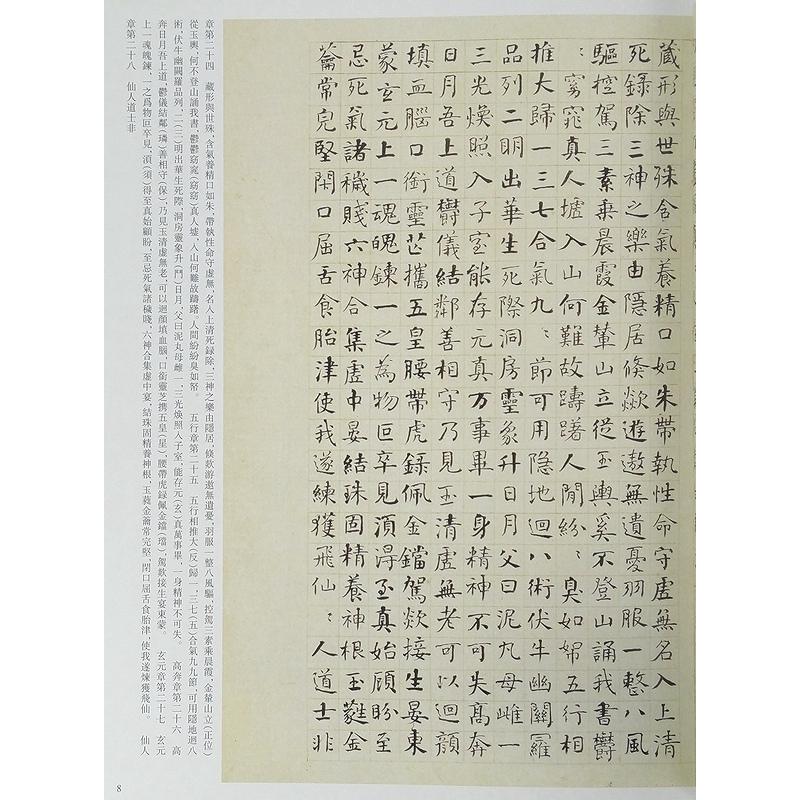 藏形與世殊含氣養精口如朱帶執性命守虛無名入上清
死錄除三神之樂由隱居倏歘遊遨無遺憂羽服一整八風
驅控駕三素乘晨霞金輦山立從玉輿奚不登山誦我書欝
:窈窕真人墟入山何難故躊躇人間紛:臭如帤五行相
推大歸一三七合氣九:節可用隱地迴八術伏牛幽闕羅
品列二明出華生死際洞房靈象升日月父曰泥丸母雌一
三光煥照入子室能存元真万事畢一身精神不可失高奔
日月吾上道欝儀結鄰善相守乃見玉清虛無老可以迴顏
填血腦口銜靈芒攜五皇腰帶虎錄佩金鐺駕歘接生晏東
蒙玄元上一魂魄鍊一之為物叵卒見湏得至真始顧盻至
忌死氣諸穢賤六神合集虛中晏結珠固精養神根玉蕤金
籥常完堅閇口屈舌食胎津使我遂練獲飛仙:人道士非
章第二十四 藏形與世殊，含氣養精口如朱，帶執性命守虛無，名入上清死録除，三神之樂由隱居，倏欻游遨無遺憂，羽服一整八風驅，控駕三素乘晨霞，金輦山立（正位）
從玉輿，何不登山誦我書，鬱鬱窈窕（窈窈）真人墟，入山何難故躊躇。人間紛紛臭如帤。 五行章第二十五 五行相推大（反）歸一，三七（五）合氣九九節，可用隱地迴八
術，伏牛幽闕羅品列，二（三）明出華生死際，洞房靈象升（鬥）日月，父曰泥丸母雌一，三光煥照入子室，能存元（玄）真萬事畢，一身精神不可失。 高奔章第二十六 高
奔日月吾上道，鬱儀結鄰（璘）善相守（保），乃見玉清虛無老，可以迴顔填血腦，口銜靈芝攜五皇（星），腰帶虎録佩金鐺（璫），駕欻接生宴東蒙。 玄元章第二十七 玄元
上一魂魄鍊，一之爲物叵卒見，湏（須）得至真始顧盼，至忌死氣諸穢賤，六神合集虛中宴，結珠固精養神根，玉蕤金籥常完堅，閉口屈舌食胎津，使我遂煉獲飛仙。 仙人
章第二十八 仙人道士非
8